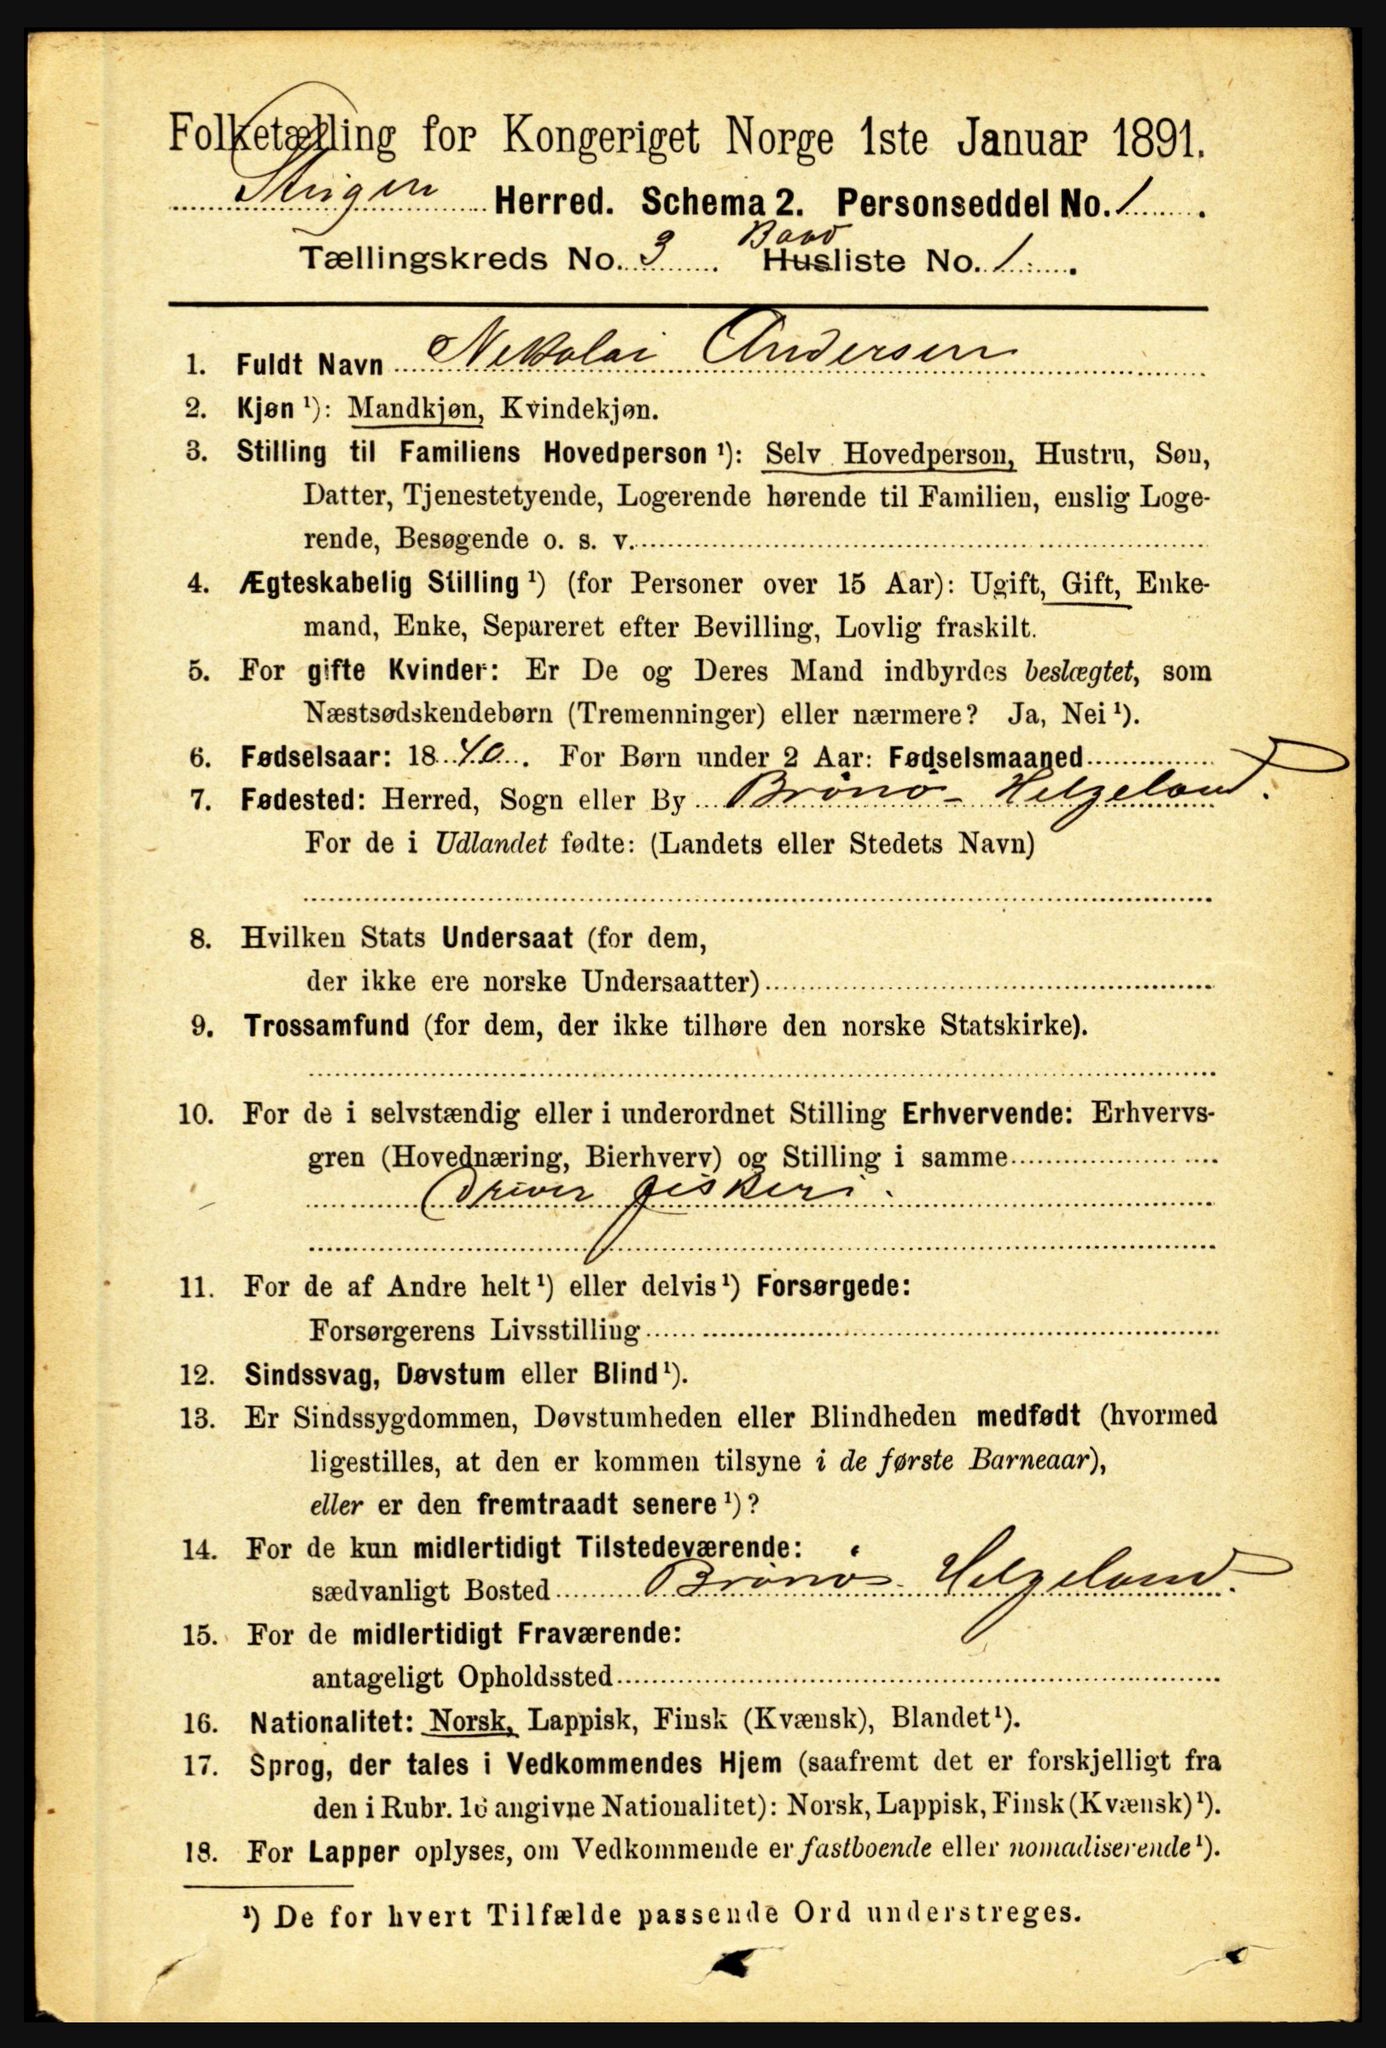 Folketælling for Kongeriget Norge 1ste Januar 1891.
Steigen Herred. Schema 2. Personseddel No. 1.
Baad
Tællingskreds No. 3. Husliste No. 1.
1. Fuldt Navn Nekolai Andersen
2. Kjøn ¹): Mandkjøn, Kvindekjøn.
3. Stilling til Familiens Hovedperson ¹): Selv Hovedperson, Hustru, Søn,
Datter, Tjenestetyende, Logerende hørende til Familien, enslig Loge-
rende, Besøgende o. s. v.
4. Ægteskabelig Stilling ¹) (for Personer over 15 Aar): Ugift, Gift, Enke-
mand, Enke, Separeret efter Bevilling, Lovlig fraskilt.
5. For gifte Kvinder: Er De og Deres Mand indbyrdes beslægtet, som
Næstsødskendebørn (Tremenninger) eller nærmere? Ja, Nei ¹).
6. Fødselsaar: 1840. For Børn under 2 Aar: Fødselsmaaned
7. Fødested: Herred, Sogn eller By Brönö Helgeland.
For de i Udlandet fødte: (Landets eller Stedets Navn)
8. Hvilken Stats Undersaat (for dem,
der ikke ere norske Undersaatter)
9. Trossamfund (for dem, der ikke tilhøre den norske Statskirke).
10. For de i selvstændig eller i underordnet Stilling Erhvervende: Erhvervs-
gren (Hovednæring, Bierhverv) og Stilling i samme
Driver fiskeri.
11. For de af Andre helt ¹) eller delvis ¹) Forsørgede:
Forsørgerens Livsstilling
12. Sindssvag, Døvstum eller Blind ¹).
13. Er Sindssygdommen, Døvstumheden eller Blindheden medfødt (hvormed
ligestilles, at den er kommen tilsyne i de første Barneaar),
eller er den fremtraadt senere ¹)?
14. For de kun midlertidigt Tilstedeværende:
sædvanligt Bosted Brönö Helgeland.
15. For de midlertidigt Fraværende:
antageligt Opholdssted
16. Nationalitet: Norsk, Lappisk, Finsk (Kvænsk), Blandet ¹).
17. Sprog, der tales i Vedkommendes Hjem (saafremt det er forskjelligt fra
den i Rubr. 16 angivne Nationalitet): Norsk, Lappisk, Finsk (Kvænsk) ¹).
18. For Lapper oplyses, om Vedkommende er fastboende eller nomadiserende ¹).
¹) De for hvert Tilfælde passende Ord understreges.